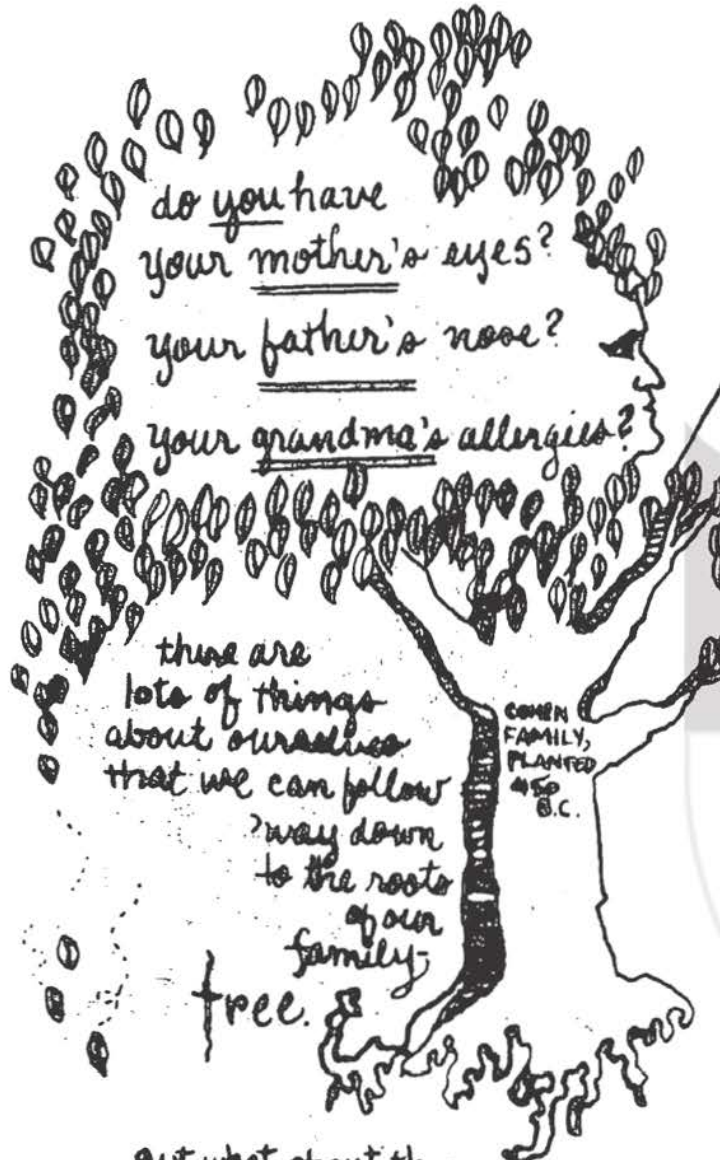 do you have
your mother's eyes?
your father's nose?
your grandma's allergies?
there are
lots of things
about ourselves
that we can follow
'way down
to the roots
of our
family-
tree.
COHEN
FAMILY,
PLANTED
450
B.C.
but what about th